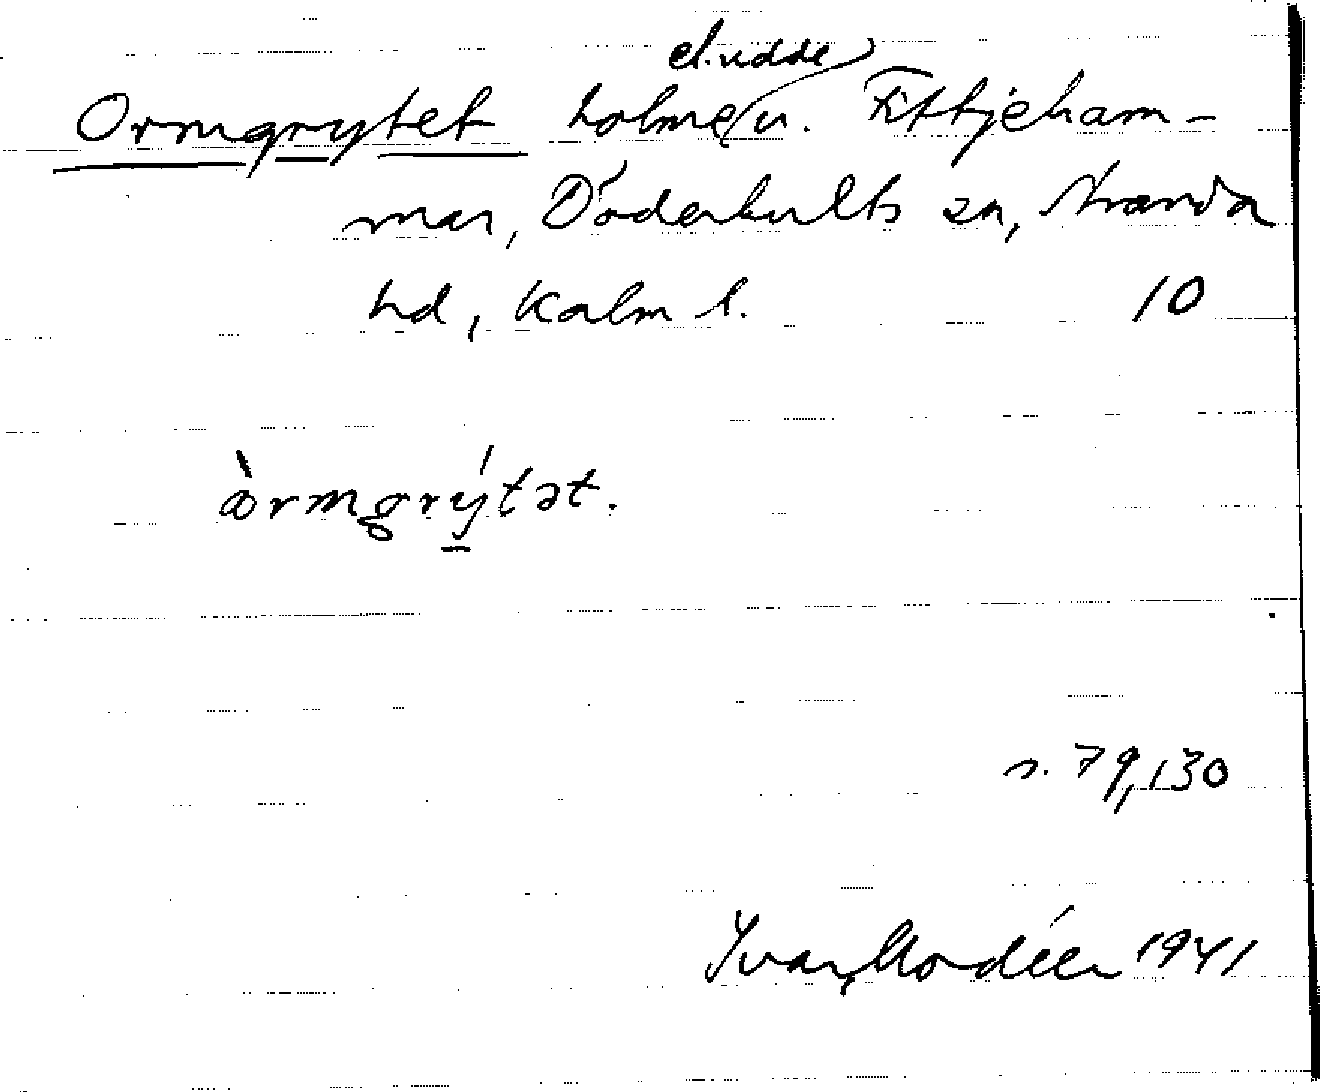 Ormgrytet holme el. udde v. Fittjeham-
mar, Döderhults sn, Stranda
hd, Kalm l. 10
òrmgrýtət.
s. 79,130
Ivar Modéer 1941